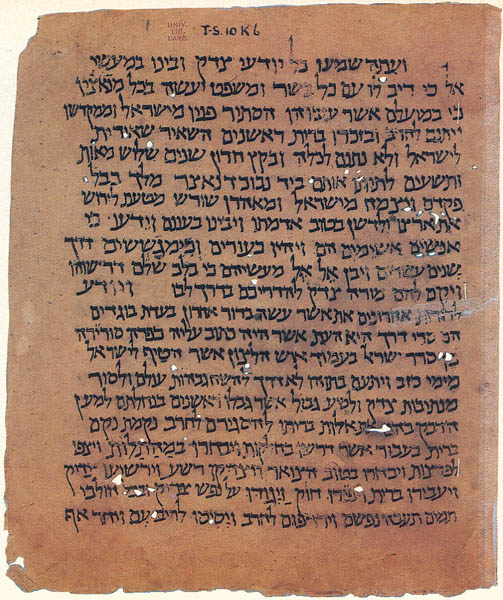 UNIV. LIB. CAMB.
T-S. 10 K 6
ועתה שמעו כל יודעי צדק ובינו במעשי
אל כי ריב לו עם כל בשר ומשפט יעשה בכל מנאציו
כי במועלם אשר עזבוהו הסתיר פניו מישראל וממקדשו
ויתנם לחרב ובזכרו ברית ראשנים השאיר שאירית
לישראל ולא נתנם לכלה ובקץ חרון שנים שלוש מאות
ותשעים לתיתו אותם ביד נבוכדנאצר מלך בבל
פקדם ויצמח מישראל ומאהרן שורש מטעת לירוש
את ארצו ולדשן בטוב אדמתו ויבינו בעונם וידעו כי
אנשים אשימים הם ויהיו כעורים וכימגששים דרך
שנים עשרים ויבן אל אל מעשיהם כי בלב שלם דרשוהו
ויקם להם מורה צדק להדריכם בדרך לבו ויודע
לדורות אחרונים את אשר עשה בדור אחרון בעדת בוגדים
הם סרי דרך היא העת אשר היה כתוב עליה כפרה סורירה
כן סרר ישראל בעמוד איש הלצון אשר הטיף לישראל
מימי כזב ויתעם בתוהו לא דרך להשח גבהות עולם ולסור
מנתיבות צדק ולסיע גבול אשר גבלו ראשנים בנחלתם למען
הדבק בהם את אלות בריתו להסגירם לחרב נקמת נקם
ברית בעבור אשר דרשו בחלקות ויבחרו במהתלות ויצפו
לפרצות ויבחרו בטוב הצואר ויצדיקו רשע וירשיעו צדיק
ויעבירו ברית ויפירו חוק ויגודו על נפש צדיק ובכל הולכי
תמים תעבה נפשם וירדפום לחרב ויסיסו לריב עם ויחר אף